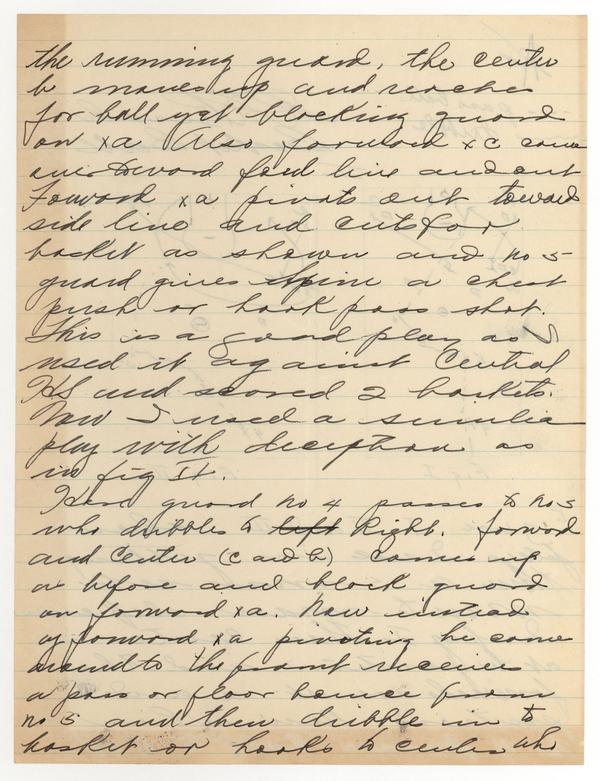 the running guard, the center
b moves up and reaches
for ball yet blocking guard
on xa Also forward xc come
over toward foul line and out
Forward xa pivots out toward
side line and cuts for
basket as shown and no 5
guard gives a chest
push or hook pass shot.
This is a good play as I
used it against Central
HS and scored 2 baskets.
Now I used a similar
play with deception as
in fig II.
Here guard no 4 passes to no 5
who dribbles to left Right. forward
and Center (c and b) comes up
as before and block guard
on forward xa. Now instead
of forward xa pivoting he come
around to the front receives
a pass or floor bounce from
no 5 and then dribble in to
basket or hooks to center who